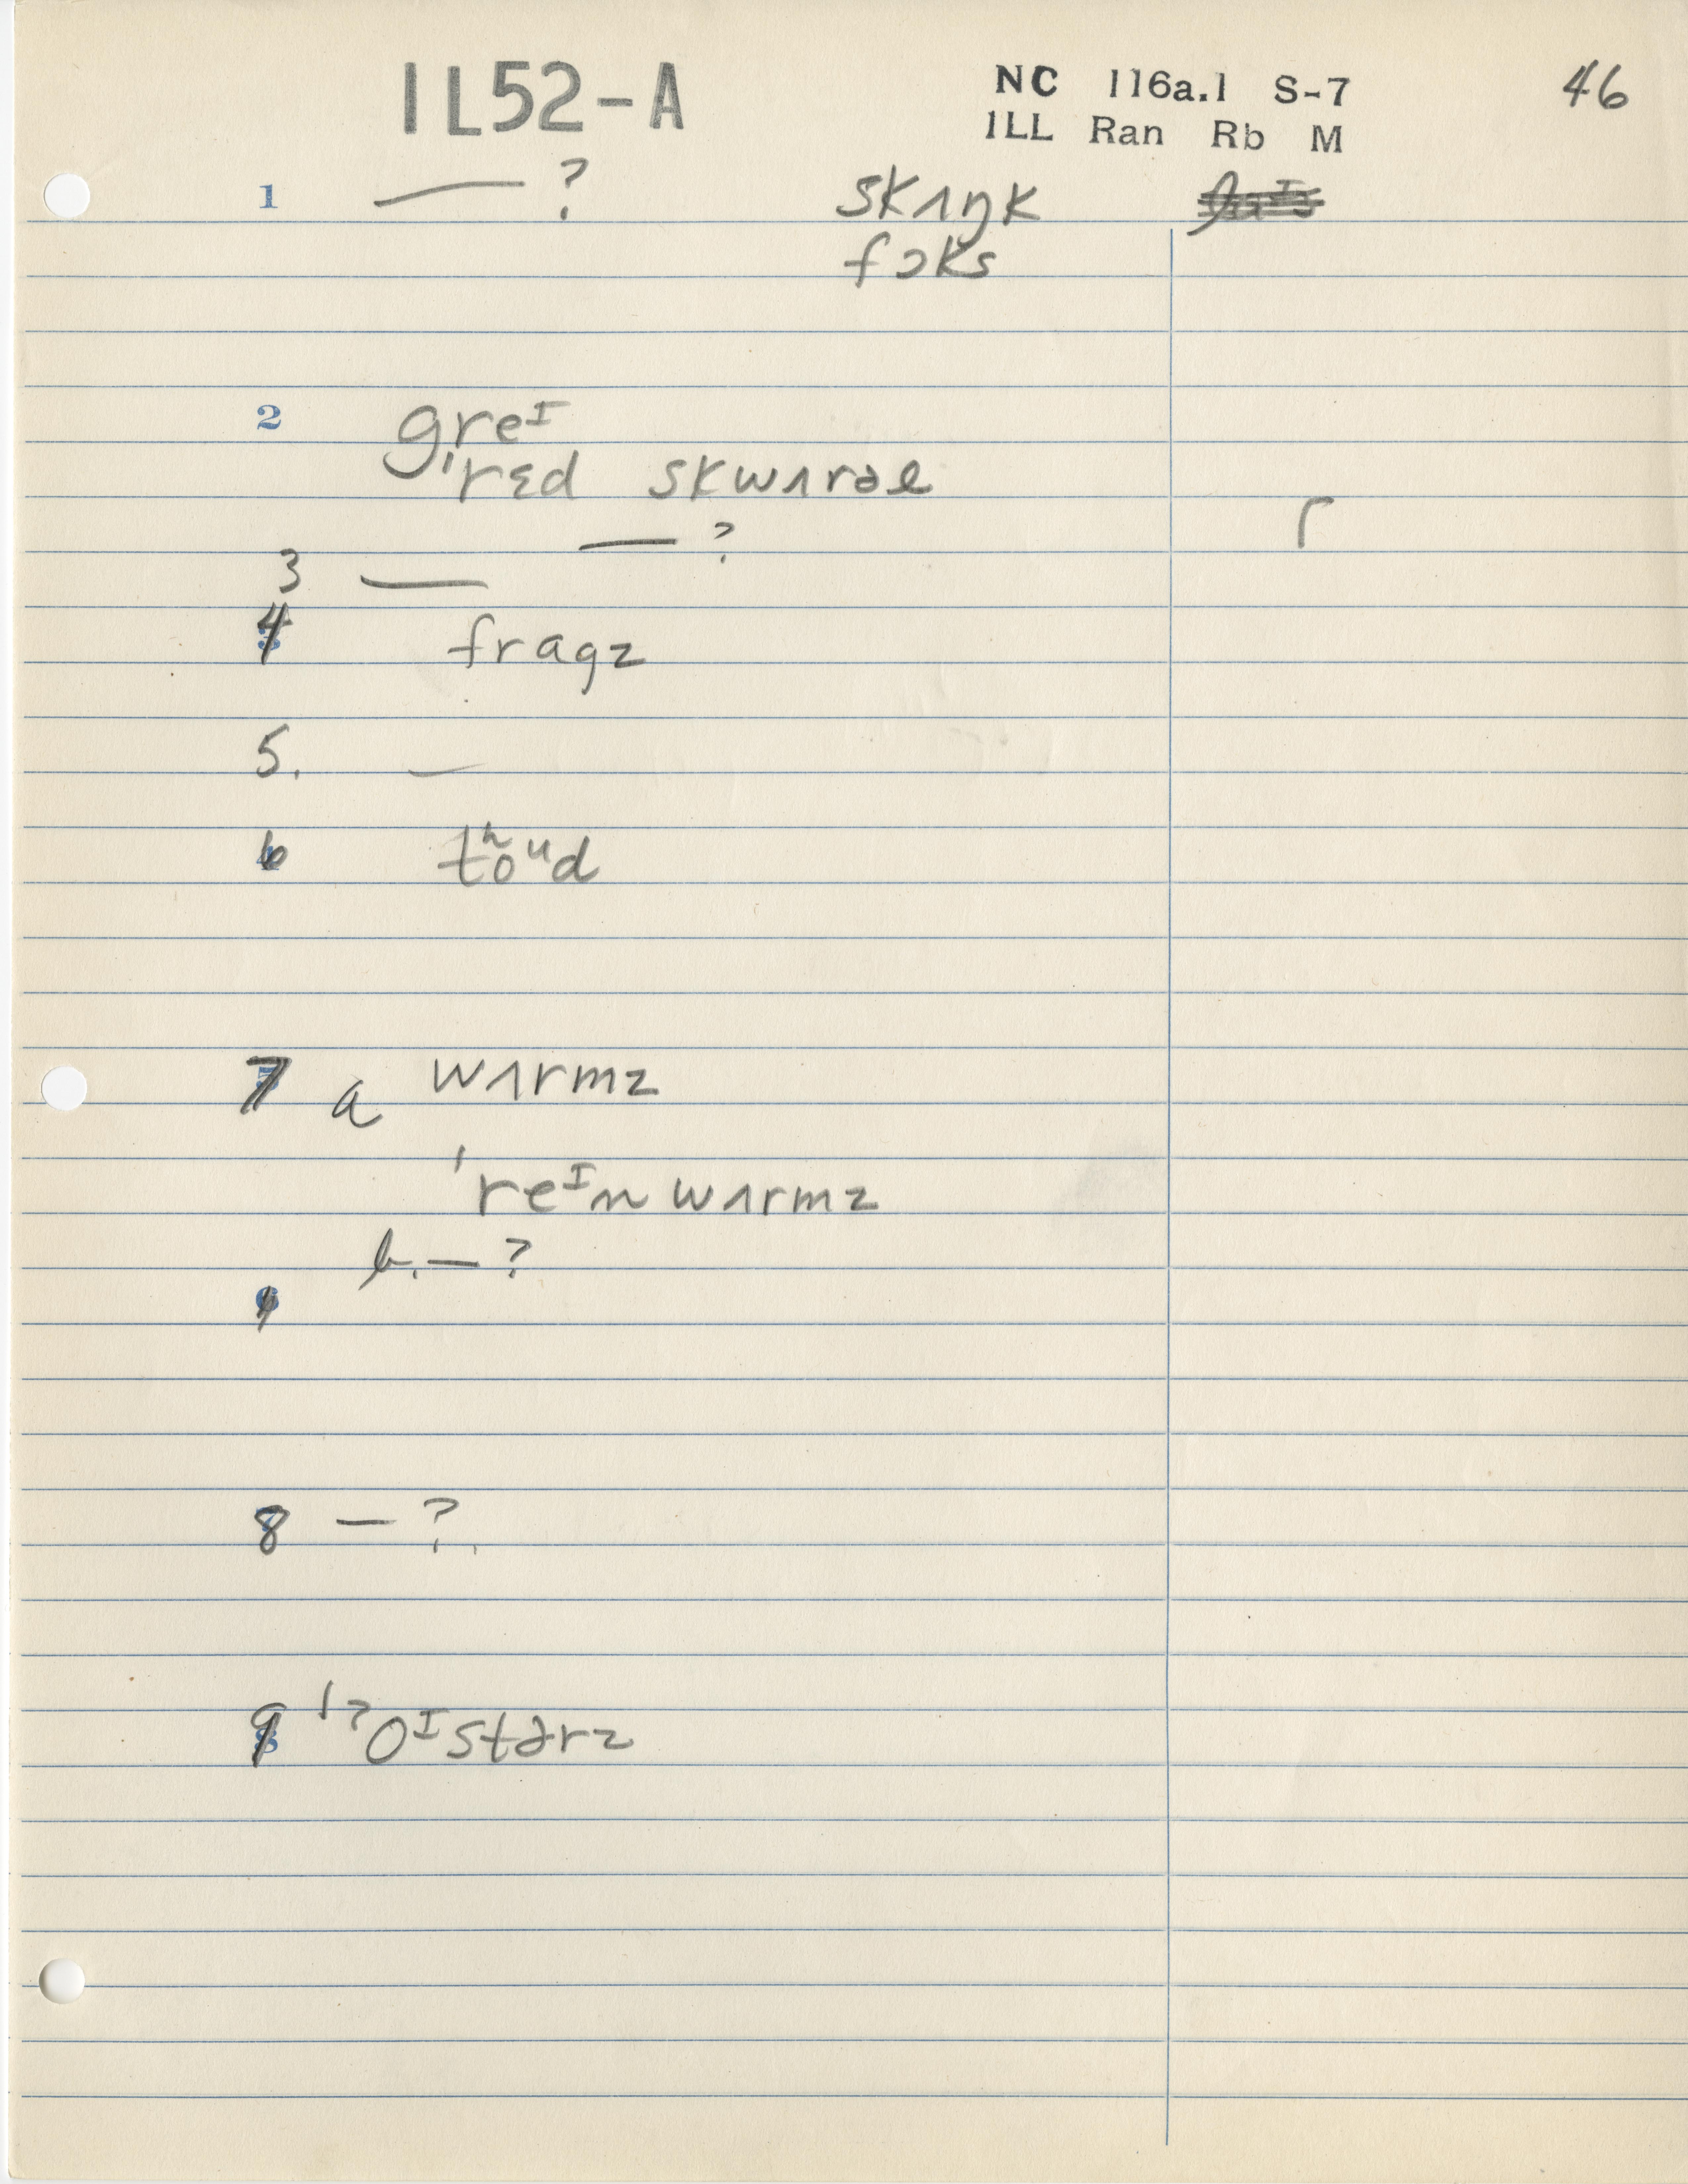 1L52-A
NC 116a.1 S-7
46
ILL Ran Rb M
1 —? skʌŋk
fɔks
2 greᴵ
ˈrɛd skwʌrəl
—?
3 —
4 fragz
5. —
6 tʰoᵘd
7 a wʌrmz
ˈreᴵn wʌrmz
b. —?
6
8 —?
9 ˈʔɔᴵstərz